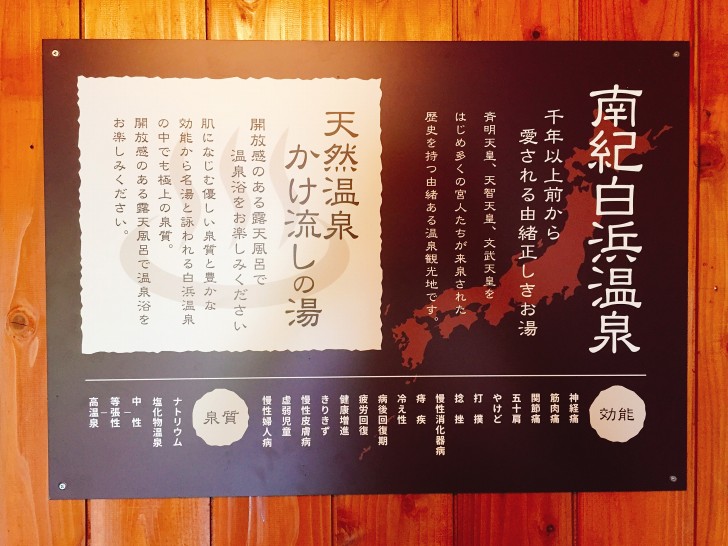 南紀白浜温泉
千年以上前から
愛される由緒正しきお湯
斉明天皇、天智天皇、文武天皇を
はじめ多くの宮人たちが来泉された
歴史を持つ由緒ある温泉観光地です。
天然温泉
かけ流しの湯
開放感のある露天風呂で
温泉浴をお楽しみください
肌になじむ優しい泉質と豊かな
効能から名湯と詠われる白浜温泉
の中でも極上の泉質。
開放感のある露天風呂で温泉浴を
お楽しみください。
効能
神経痛
筋肉痛
関節痛
五十肩
やけど
打撲
捻挫
慢性消化器病
痔疾
冷え性
病後回復期
疲労回復
健康増進
きりきず
慢性皮膚病
虚弱児童
慢性婦人病
泉質
ナトリウム
塩化物温泉
中性
等張性
高温泉